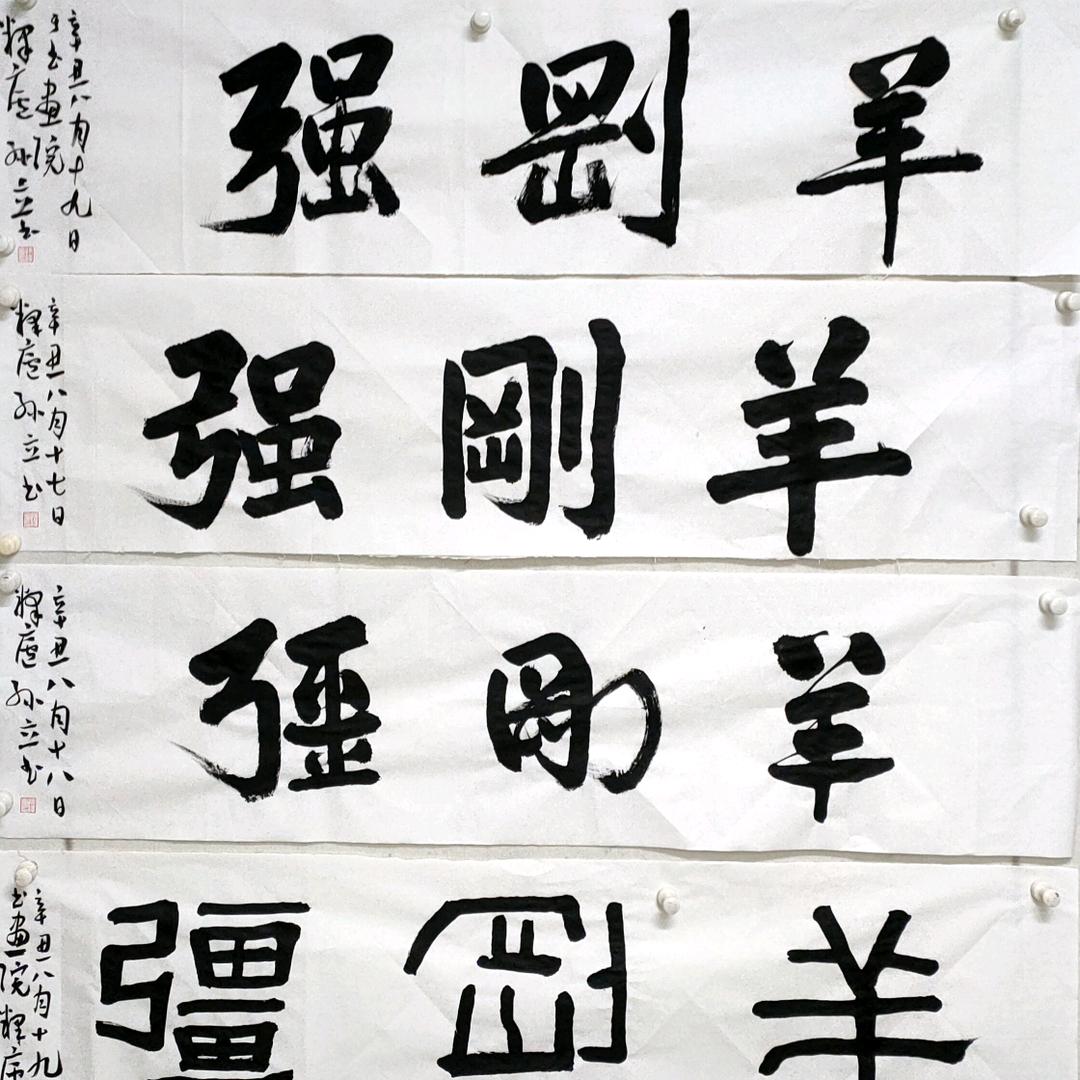 羊剛强
辛丑八月十九日
书画院
釋虐孙立书
羊剛强
辛丑八月十七日
釋虐孙立书
羊剛彊
辛丑八月十八日
釋虐孙立书
羊剛彊
辛丑八月十九
书画院釋